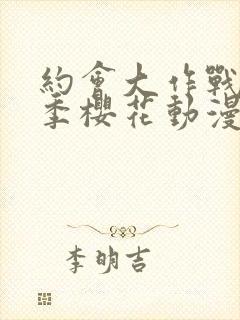 約會大作戰
季櫻花動漫
李明吉